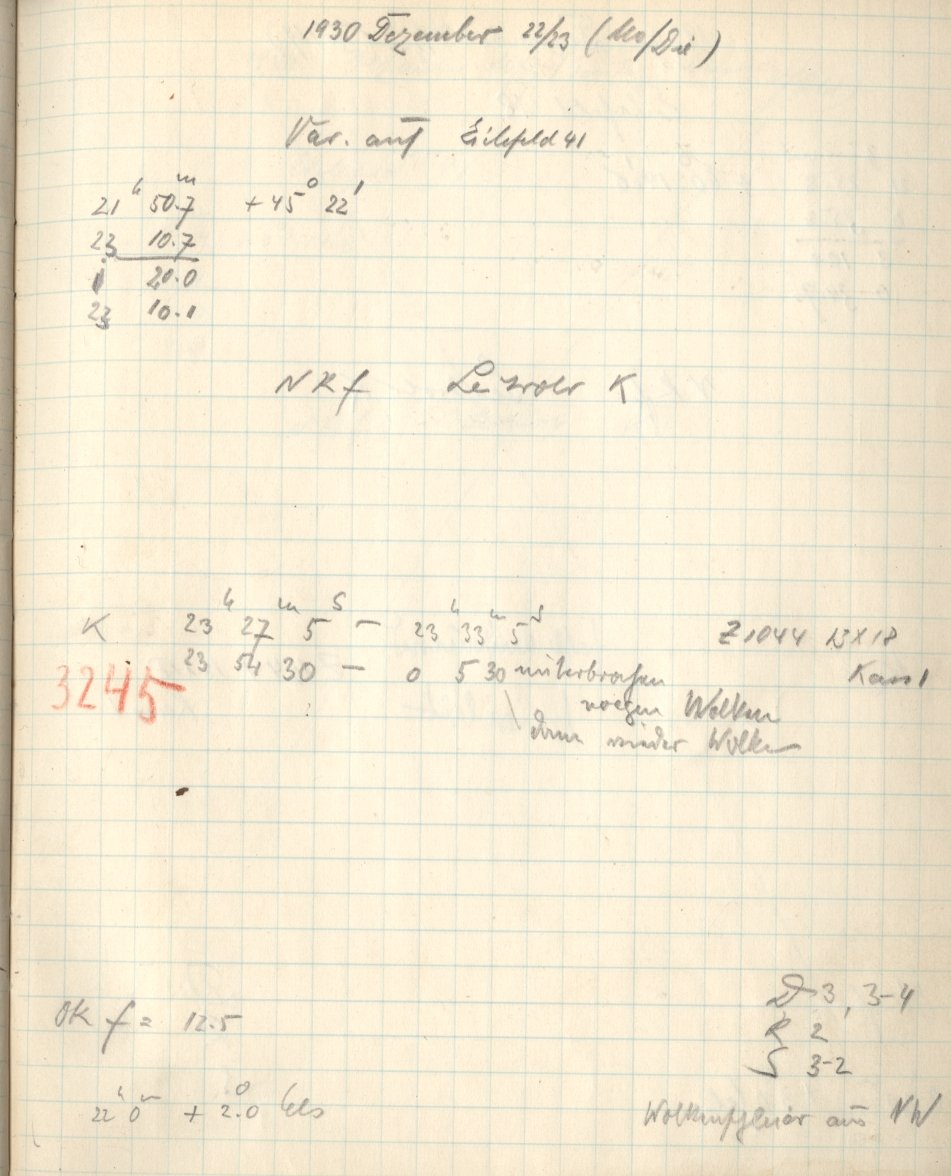 1930 Dezember 22/23 (Mo/Die)
Var. auf Eilfeld 41
21ʰ 50.7ᵐ +45° 22'
23 10.7
1 20.0
23 10.1
NRf K
K 23ʰ 27ᵐ 5ˢ – 23ʰ 33ᵐ 5ˢ Z 1044 13X18
23 54 30 – 0 5 30 unterbrochen Kass 1
3245
wegen Wolken
dann wieder Wolken
OK f = 12.5
D 3, 3-4
R 2
S 3-2
22ʰ 0ᵐ +2.0° Cels
aus NW